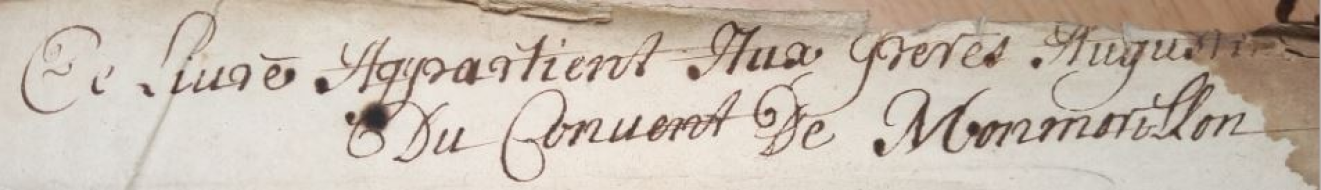 Ce Liure Appartient Aux freres Augustins
Du Conuent De Monmorillon